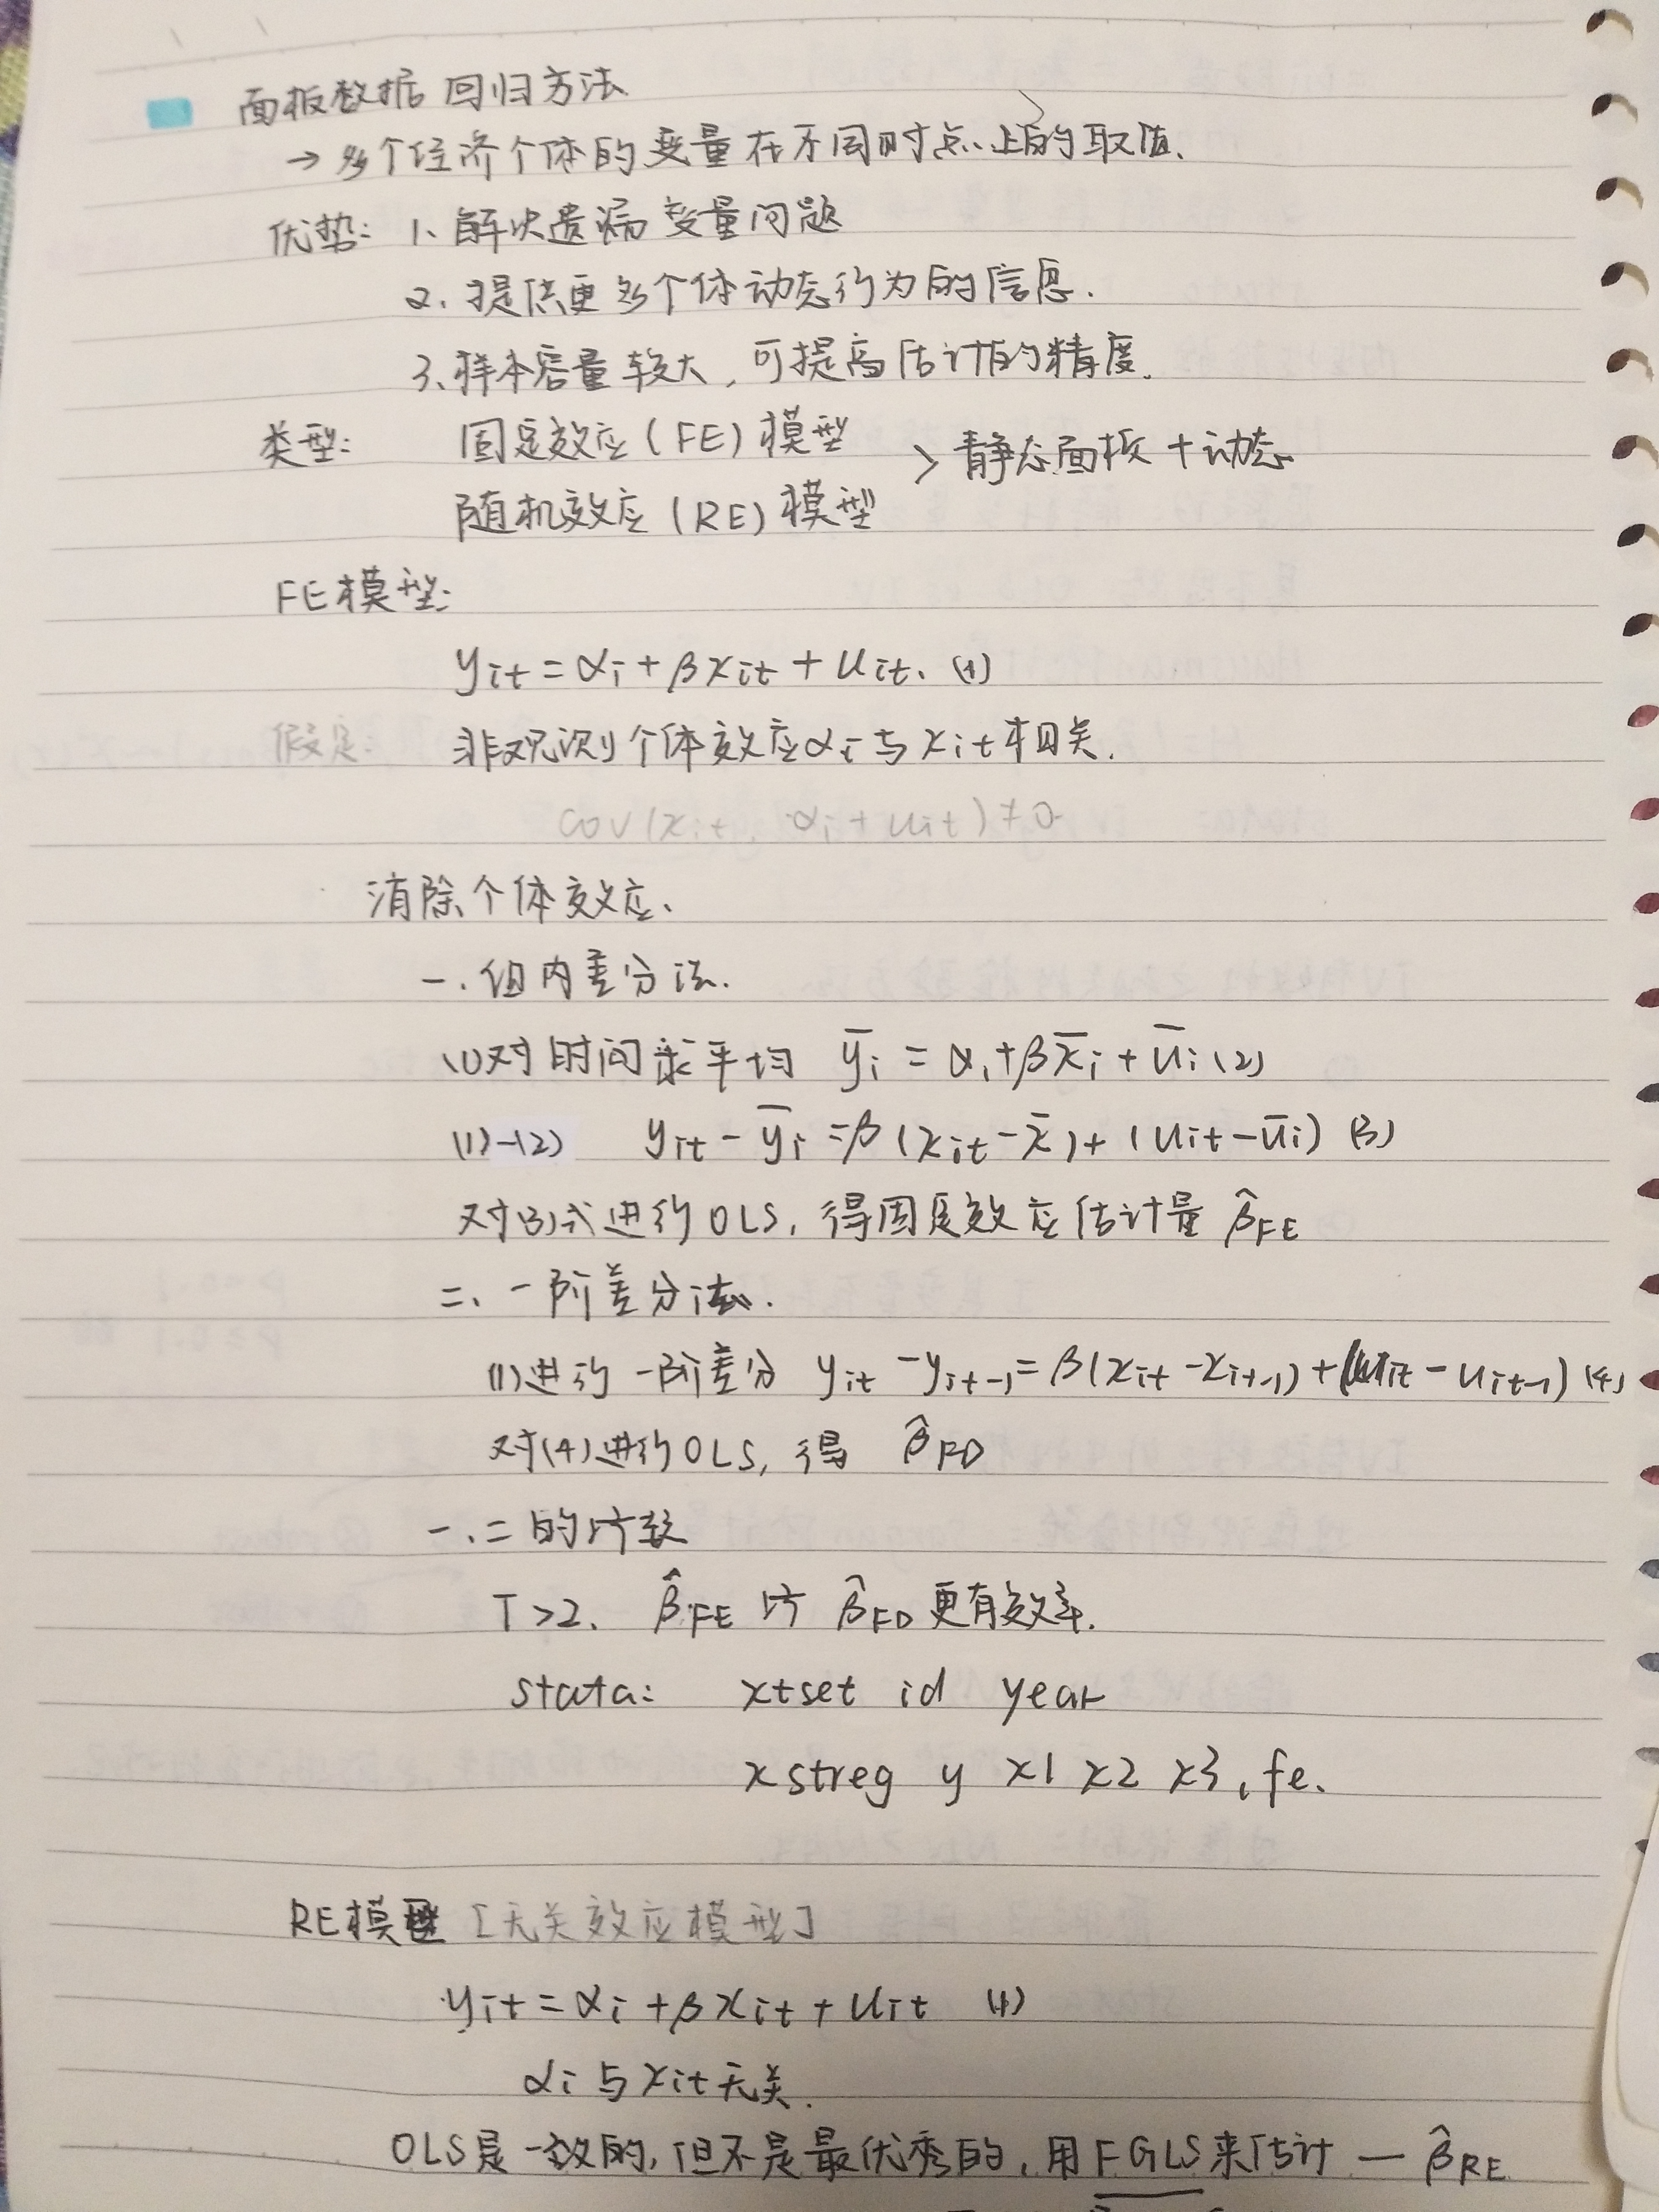 面板数据回归方法
→ 多个经济个体的变量在不同时点上的取值.
优势: 1、解决遗漏变量问题
2、提供更多个体动态行为的信息.
3、样本容量较大,可提高估计的精度.
类型: 固定效应(FE)模型 > 静态面板+动态
随机效应(RE)模型
FE模型:
yit = αi + βxit + uit. (1)
假定: 非观测个体效应αi与xit相关.
cov(xit, αi+uit)≠0
消除个体效应、
一.组内差分法.
(1)对时间求平均 ȳi = αi+βx̄i+ūi (2)
(1)-(2) yit - ȳi = β(xit - x̄)+(uit-ūi) (3)
对(3)式进行OLS,得固定效应估计量 β̂FE
二、一阶差分法.
(1)进行一阶差分 yit - yit-1 = β(xit - xit-1)+(uit - uit-1) (4)
对(4)进行OLS,得 β̂FD
一.二的比较
T>2、 β̂FE 比 β̂FD 更有效率.
stata: xtset id year
xstreg y x1 x2 x3, fe.
RE模型 [无关效应模型]
yit = αi + βxit + uit (1)
αi与xit无关.
OLS是一致的,但不是最优秀的,用FGLS来估计 — β̂RE